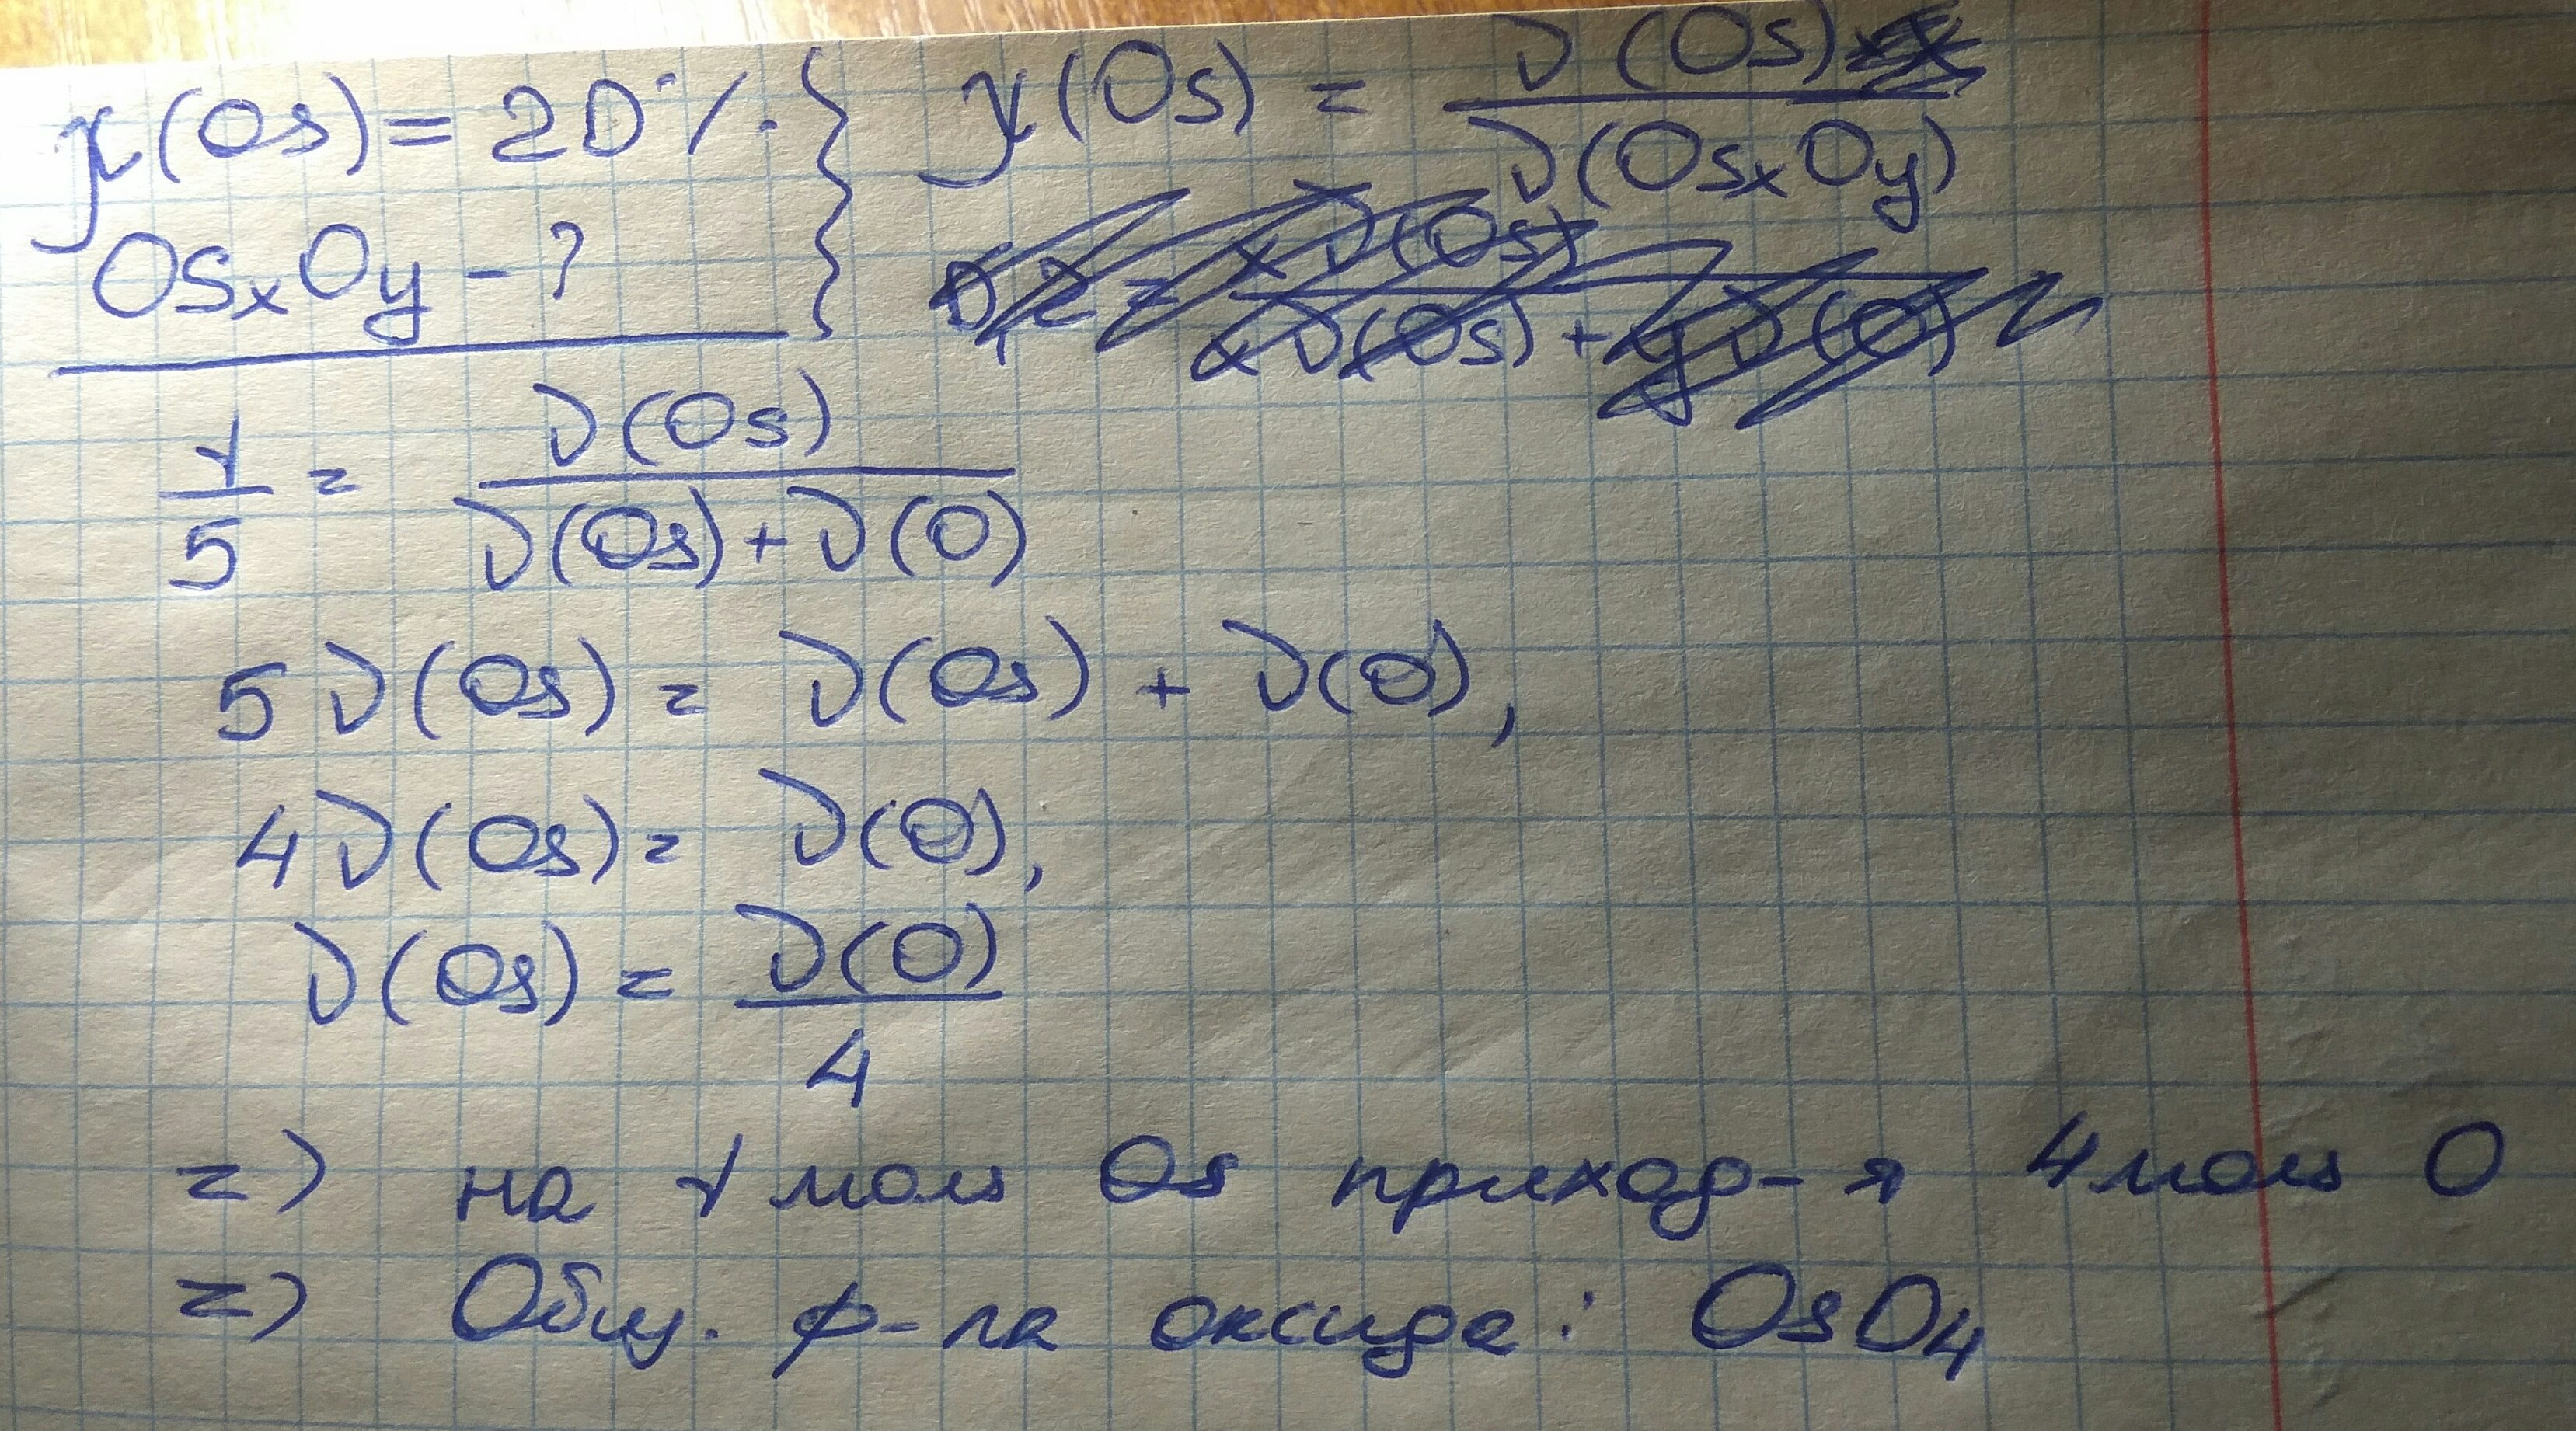 χ(Os) = 20%.
OsxOy - ?
χ(Os) = ν(Os) / ν(OsxOy)
1/5 = ν(Os) / ν(Os) + ν(O)
5ν(Os) = ν(Os) + ν(O),
4ν(Os) = ν(O),
ν(Os) = ν(O) / 4
=> на 1 моль Os приход-я 4 моль O
=> Общ. ф-ла оксида: OsO4